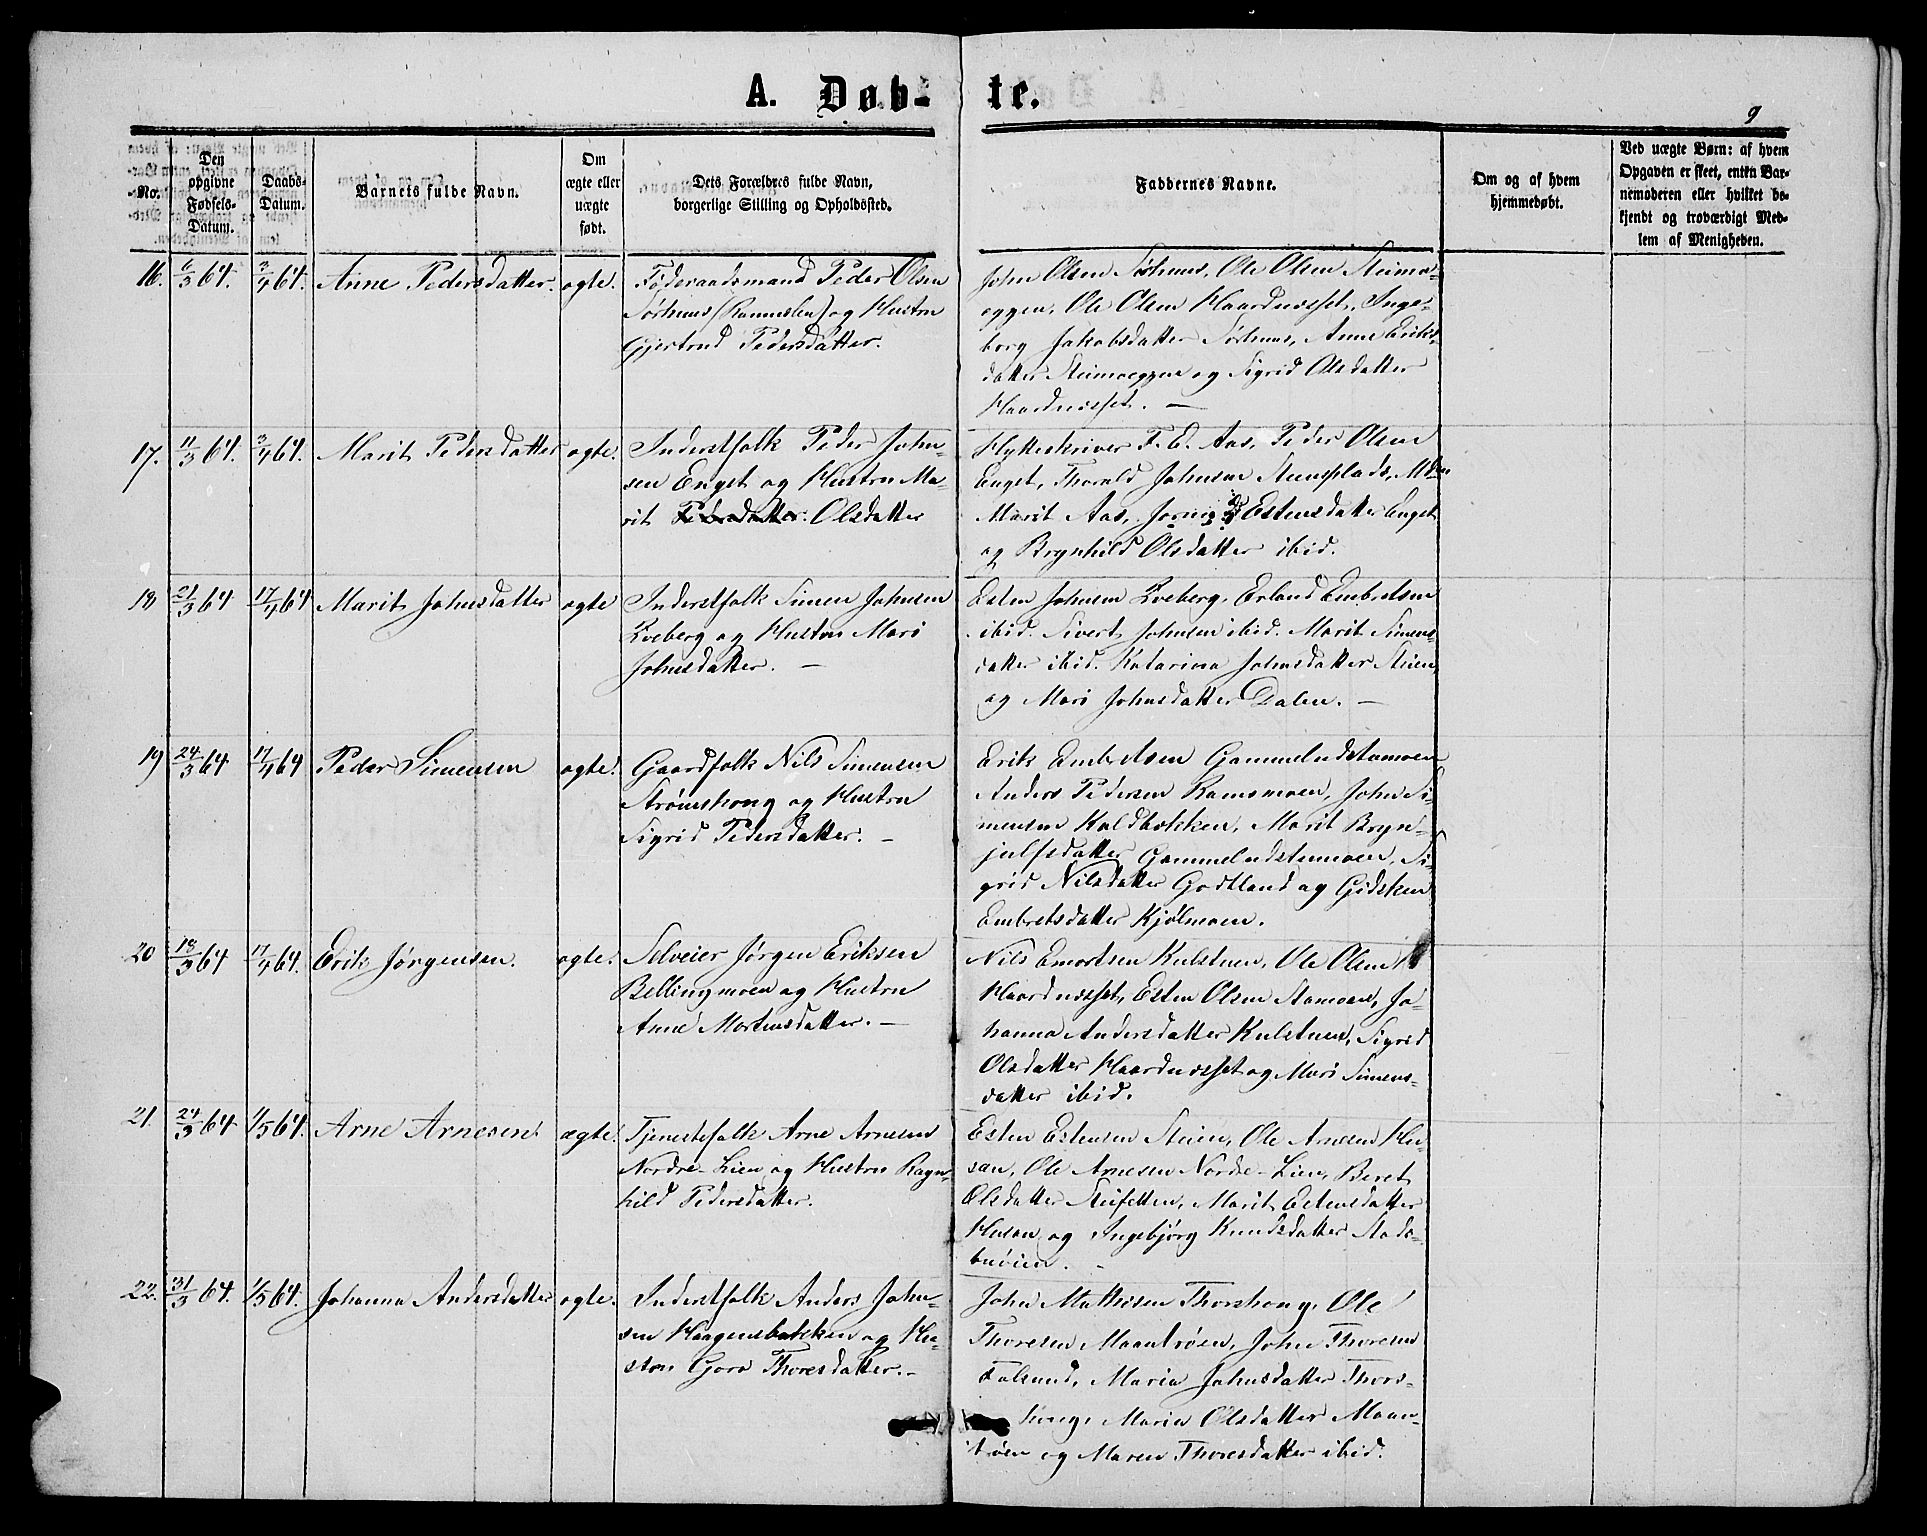 A. Døb- te.
9
No.
Den opgivne Fødsels-Datum.
Daabs-Datum.
Barnets fulde Navn.
Om ægte eller uægte født.
Dets Forældres fulde Navn, borgerlige Stilling og Opholdssted.
Faddernes Navne.
Om og af hvem hjemmedøbt.
Ved uægte Børn: af hvem Opgaven er skeet, enten Barnemoderen eller hvilket bekjendt og troværdigt Medlem af Menigheden.
16. 6/3 64. 3/4 64. Anne Pedersdatter. ægte.
Føderaadsmand Peder Olsen
Sørhuus (Rannslien) og Hustru
Gjertrud Pedersdatter.
John Olsen Sørhuus, Ole Olsen Steimo-
eggen, Ole Olsen Haardnæsset, Inge-
borg Jakobsdatter Sørhuus, Anne Eriks-
datter Steimoeggen og Sigrid Olsdatter
Haardnæsset. —
17. 11/3 64. 3/4 64. Marit Pedersdatter ægte.
Inderstfolk Peder John-
sen Enget og Hustru Ma-
rit Pedersdatter. Olsdatter
Hytteskriver F. E. Aas, Peder Olsen
Enget, Thorald Johnsen Steensplads,
Marit Aas, Estensdatter Enget
og Brynhild Olsdatter ibid.
18 21/3 64 17/4 64 Marit Johnsdatter ægte
Inderstfolk Simen Johnsen
Kveberg og Hustru Mari
Johnsdatter. —
Esten Johnsen Kveberg, Erland Embretsen
ibid. Sivert Johnsen ibid. Marit Simens-
datter ibid. Katarina Johnsdatter Steien
og Mari Johnsdatter Dalen. —
19 24/3 64 17/4 64 Peder Simensen ægte.
Gaardfolk Nils Simensen
Strømshoug og Hustru
Sigrid Pedersdatter. —
Erik Embretsen Gammeludstumoen
Anders Pedersen Ramsmoen, John Si-
mensen Koldbækken, Marit Bryn-
julfsdatter Gammeludstumoen, Si-
grid Nilsdatter Godtland og Gidsken
Embretsdatter Kjølmoen.
20 18/3 64 17/4 64. Erik Jørgensen. ægte.
Selveier Jørgen Eriksen
Bellingmoen og Hustru
Anne Mortensdatter. —
Nils Emortsen Kulstuen, Ole Olsen
Haardnæsset, Esten Olsen Aamoen, Jo-
hanna Andersdatter Kulstuen, Sigrid
Olsdatter Haardnæsset og Mari Simens-
datter ibid.
21. 24/3 64 1/5 64. Arne Arnesen. ægte.
Tjenestefolk Arne Arnesen
Nordre-Lien og Hustru Ragn-
hild Pedersdatter.
Esten Estensen Steien, Ole Arnesen Hu-
san, Ole Arnesen Nordre-Lien, Beret
Olsdatter Steifetten, Marit Estensdatter
Husan og Ingebjørg Knudsdatter
22. 31/3 64. 1/5 64. Johanna Andersdatter ægte.
Inderstfolk Anders John-
sen Haagensbakken og Hu-
stru Goro Thoresdatter. —
John Mathisen Thorshoug, Ole
Thoresen Maantrøen, John Thoresen
Falsund, Maria Johnsdatter Thors-
houg, Maria Olsdatter Maan-
trøen og Maren Thoresdatter ibid.